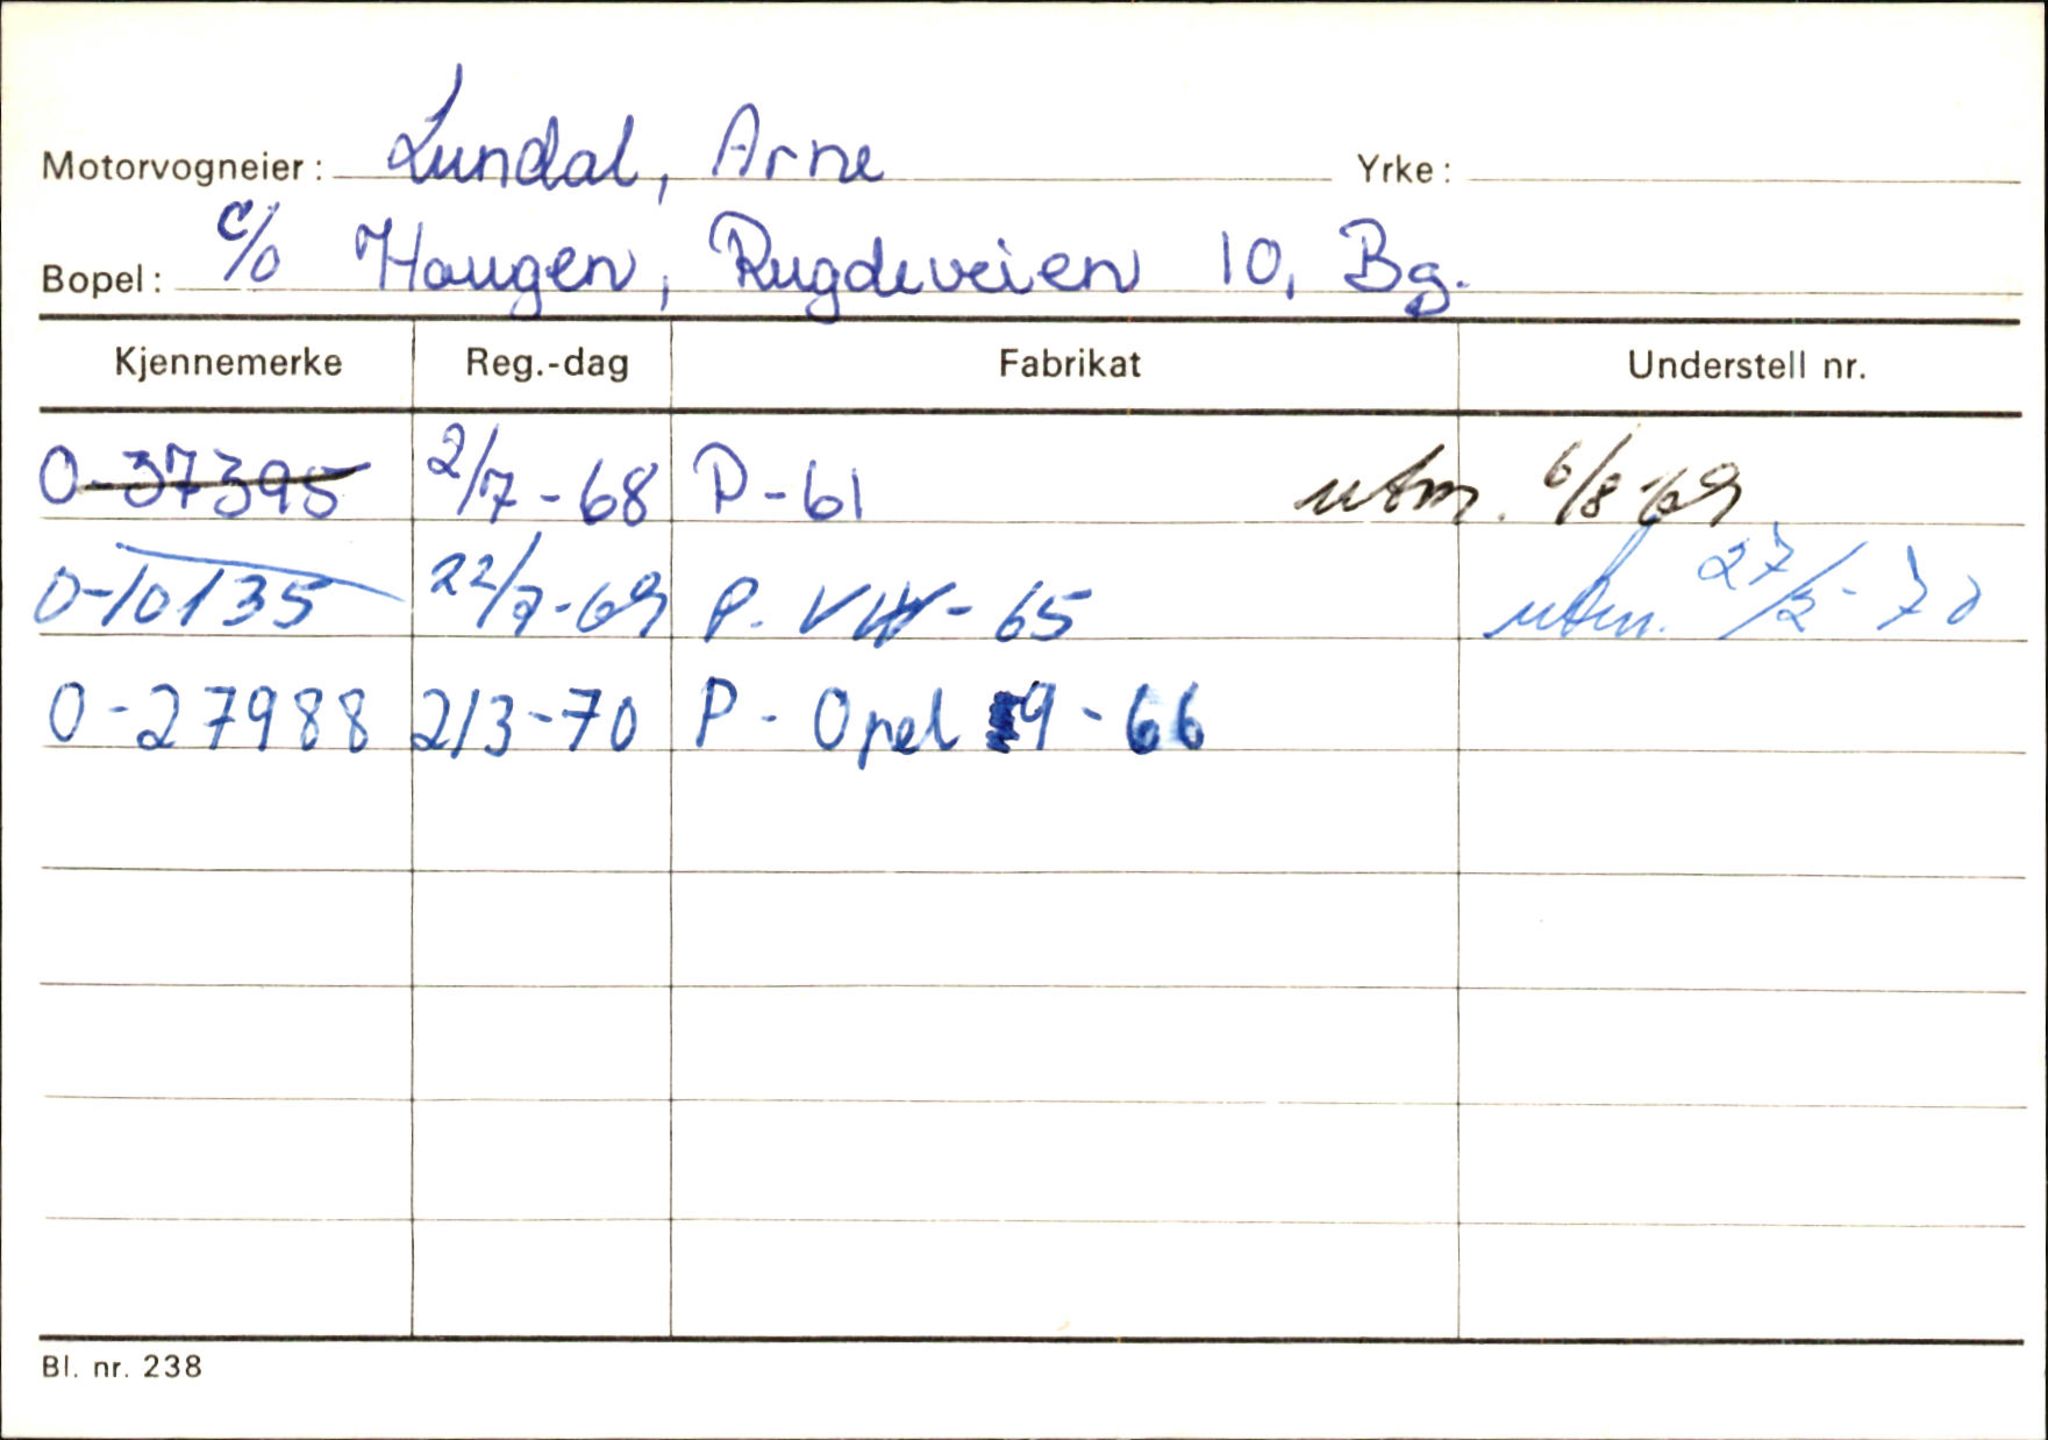 Motorvogneier: Lundal, Arne Yrke:
Bopel: c/o Haugen, Rugdeveien 10, Bg.
Kjennemerke Reg.-dag Fabrikat Understell nr.
O-37395 2/7-68 P-61 utm. 6/8-69
O-10135 22/7-69 P. VW-65 utm. 27/2-70
O-27988 2/3-70 P-Opel 9-66
Bl. nr. 238